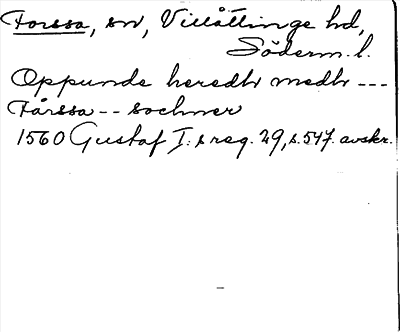 Forssa, sn, Villåttinge hd,
Söderm. l.
Oppunde heredh medh ---
Fårssa -- sochner
1560 Gustaf I:s reg. 29, s. 547. avskr.